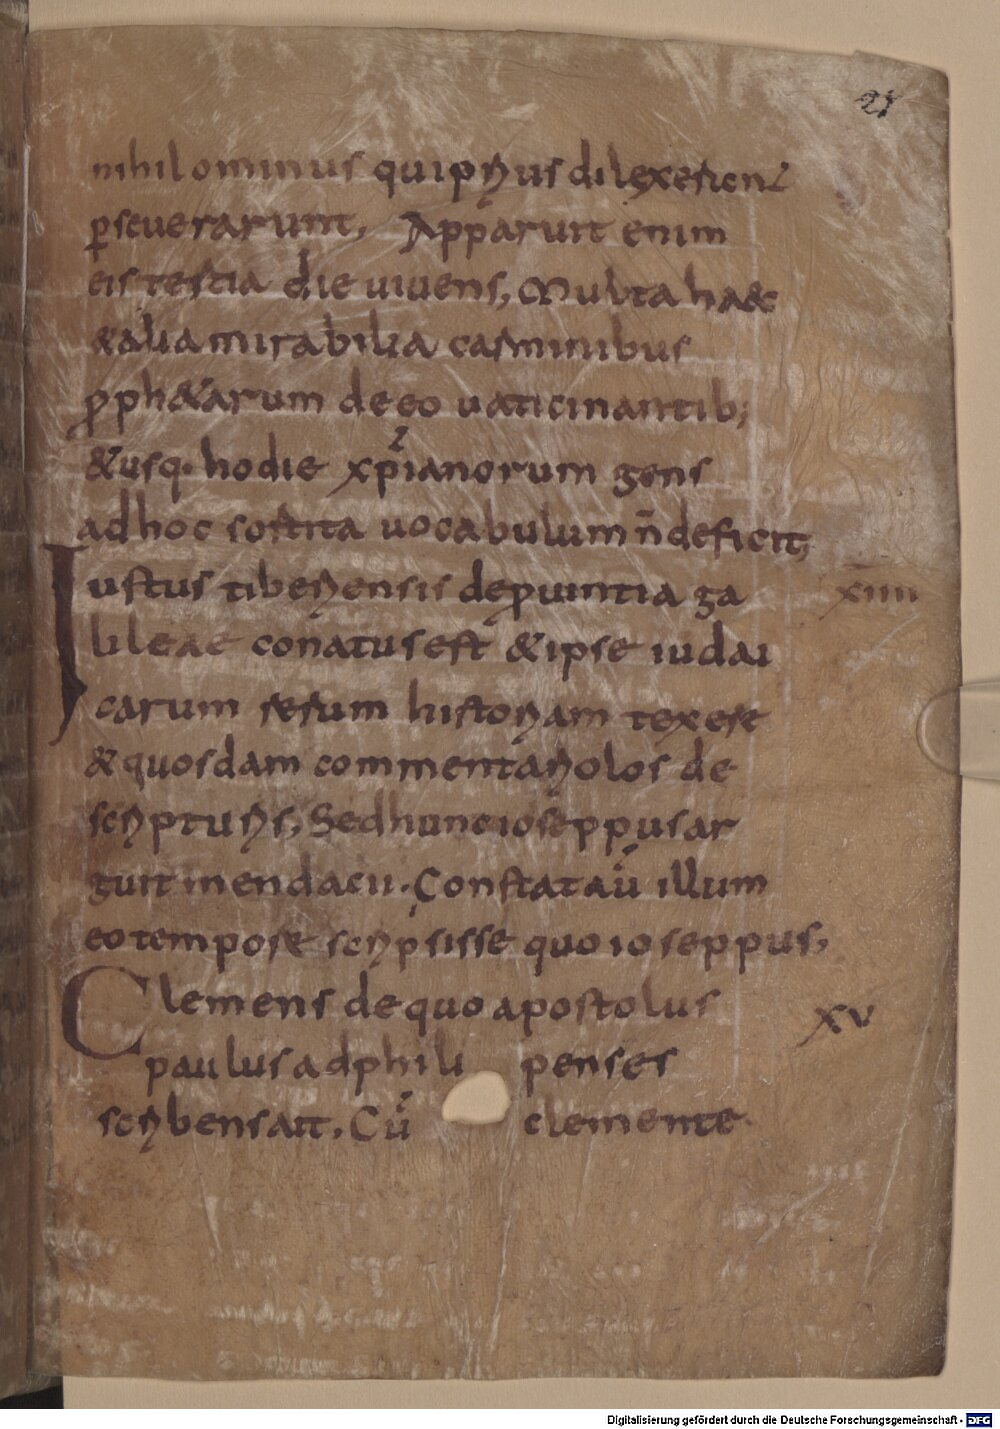 21
nihilominus qui primus dilexerant
p̱seuerarunt, Apparuit enim
eis tertia die uiuens, Multa haec
&alia mirabilia carminibus
ꝓph&arum de eo uaticinantib;
&usq. hodie xp̄ianorum gens
ad hoc sortita uocabulum n̄ deficit,
Iustus tiberiensis de puintia ga xiiii
lileae conatus est & ipse iudai
carum rerum historiam texere
& quosdam commentariolos de
scripturis, Sed hunc ioseppus ar
guit mendacii. Constat aū illum
eo tempore scripsisse quo ioseppus,
Clemens de quo apostolus xv
paulus ad phili penses
scribens ait. Cū clemente
Digitalisierung gefördert durch die Deutsche Forschungsgemeinschaft - DFG